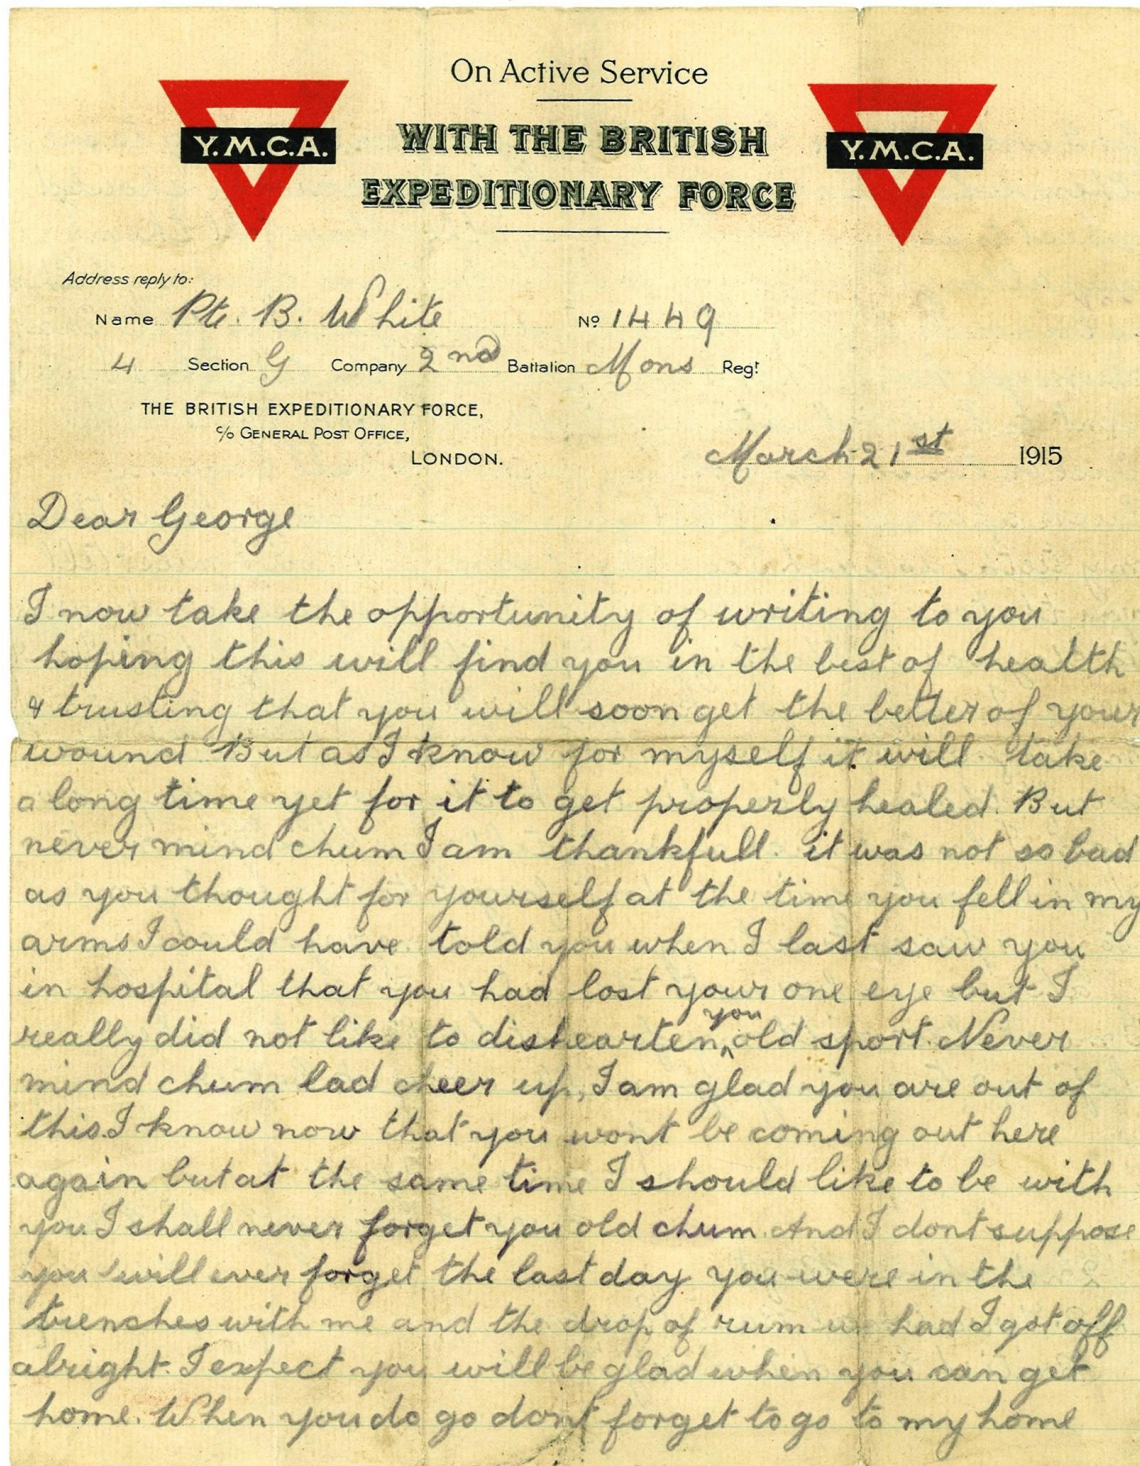 On Active Service
Y.M.C.A.
WITH THE BRITISH
EXPEDITIONARY FORCE
Y.M.C.A.
Address reply to:
Name Pte. B. White Nº 1449
4 Section G Company 2nd Battalion Mons Regt
THE BRITISH EXPEDITIONARY FORCE,
c/o GENERAL POST OFFICE,
LONDON.
March 21st 1915
Dear George
I now take the opportunity of writing to you
hoping this will find you in the best of health
& trusting that you will soon get the better of your
wound But as I know for myself it will take
a long time yet for it to get properly healed. But
never mind chum I am thankfull. it was not so bad
as you thought for yourself at the time you fell in my
arms I could have told you when I last saw you
in hospital that you had lost your one eye but I
really did not like to dishearten you old sport. Never
mind chum lad cheer up, I am glad you are out of
this. I know now that you wont be coming out here
again but at the same time I should like to be with
you I shall never forget you old chum. And I dont suppose
you will ever forget the last day you were in the
trenches with me and the drop of rum we had I got off
alright. I expect you will be glad when you can get
home. When you do go dont forget to go to my home